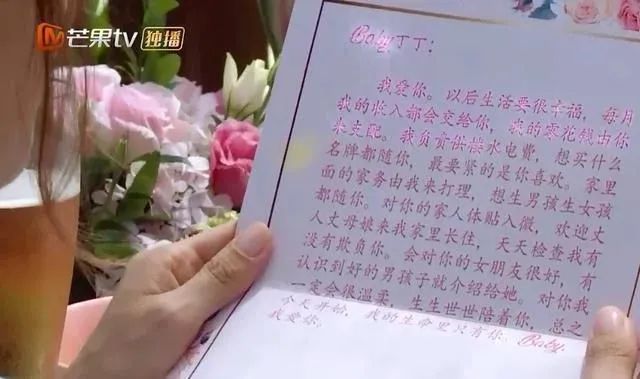 芒果tv 独播
Baby丁丁:
我爱你。以后生活要很幸福，每月
我的收入都会交给你，我的零花钱由你
来支配。我负责供楼水电费，想买什么
名牌都随你，最要紧的是你喜欢。家里
面的家务由我来打理，想生男孩生女孩
都随你。对你的家人体贴入微，欢迎丈
人丈母娘来我家里长住，天天检查我有
没有欺负你。会对你的女朋友很好，有
认识到好的男孩子就介绍给她。对你我
一定会很温柔，生生世世陪着你，总之
今天开始，我的生命里只有你，Baby
我爱你。